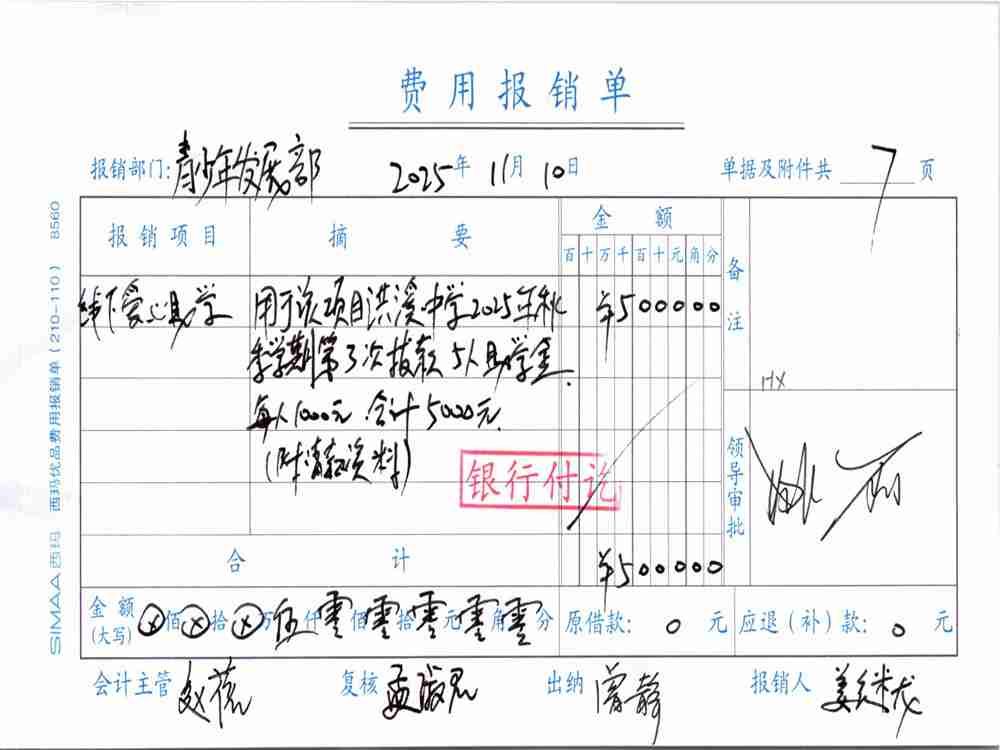 费用报销单
报销部门:青少年发展部 2025年 11月 10日 单据及附件共 7 页
报销项目 摘要 金额 备注
百十万千百十元角分
线下爱心助学 用于该项目洪溪中学2025年秋 ¥500000
季学期第3次拨款 5人助学金
每人1000元 合计5000元
HX
(附请款资料)
银行付讫
领导审批
合计 ¥500000
金额(大写) ⊗佰⊗拾⊗万伍仟零佰零拾零元零角零分 原借款: 0 元 应退(补)款: 0 元
会计主管 复核 出纳 曾静 报销人 姜继龙
SIMAA西玛 西玛优品费用报销单(210-110) 8560